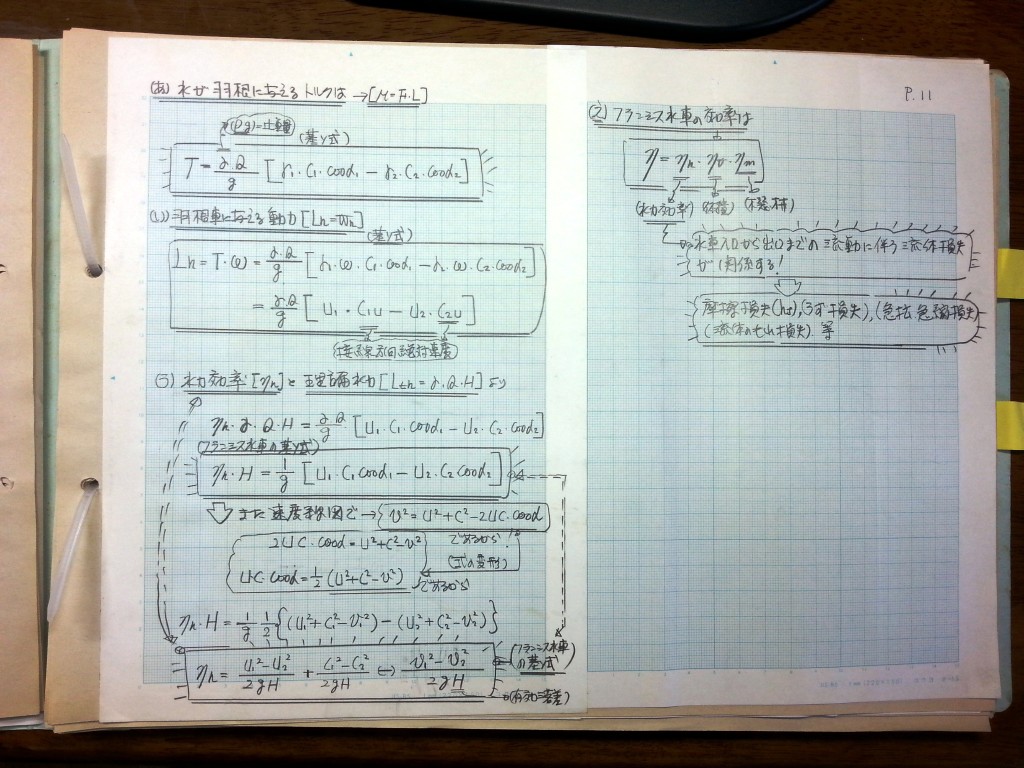 (あ) 水が羽根に与えるトルクは →[M=F・L]
(ρg)=比重量
(基ソ式)
T = γ・Q/g [r₁・C₁・cosα₁ − r₂・C₂・cosα₂]
(い) 羽根車に与える動力 [Lh=Wh]
(基ソ式)
Lh = T・ω = γ・Q/g [r₁・ω・C₁・cosα₁ − r₂・ω・C₂・cosα₂]
= γ・Q/g [U₁・C₁u − U₂・C₂u]
(接線方向絶対速度)
(う) 水力効率[ηh]と理論水力[Lth=γ・Q・H]より
ηh・γ・Q・H = γ・Q/g [U₁・C₁・cosα₁ − U₂・C₂・cosα₂]
(フランシス水車の基ソ式)
ηh・H = 1/g [U₁・C₁cosα₁ − U₂・C₂cosα₂]
また速度線図で→ V²=U²+C²−2UC・cosα
2UC・cosα=U²+C²−V² であるから!
(式の変形)
UC・cosα=1/2(U²+C²−V²) であるから
ηh・H = 1/g・1/2{(U₁²+C₁²−V₁²)−(U₂²+C₂²−V₂²)}
ηh = U₁²−U₂²/2gH + C₁²−C₂²/2gH (−) V₁²−V₂²/2gH
(フランシス水車の基ソ式)
(有効落差)
P.11
(え) フランシス水車の効率は
η = ηh・ηv・ηm
(水力効率) (体積) (機械)
水車入口から出口までの流動に伴う流体損失
が関係する!
摩擦損失(hf),うず損失),(急拡急縮損失)
(流体のもれ損失) 等